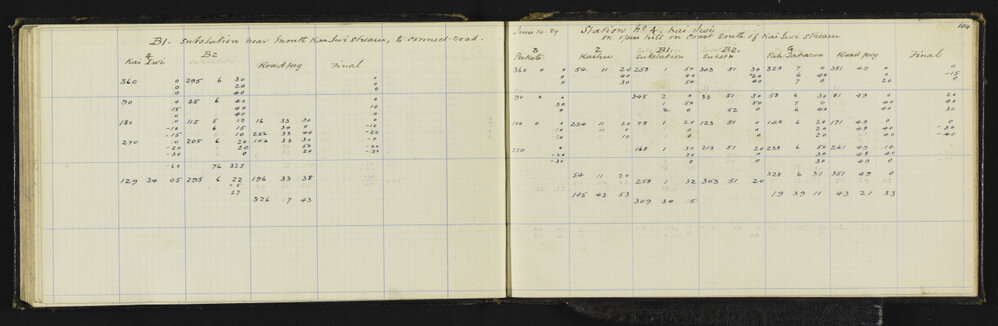 B1. Substation near mouth Kai Iwi stream, to connect road.
4 B2
Kai Iwi Road peg Final
360 0 295 6 30 0
0 20 0
0 40 0
90 0 25 6 40 0
15 40 10
0 40 0
180 0 115 5 50 16 33 30 0
-10 6 15 30 0 -10
-15 10 256 33 40 -20
270 0 205 6 20 106 33 30 0
-20 20 50 -20
-30 0 20 -30
-60 76 325
129 34 05 295 6 22 196 33 38
-5
27
326 7 43
June 14. 89 Station No 4, Kai Iwi 104
on open hill on coast South of Kai Iwi stream
3 2 B1 B2 G
Kaihu Substation Substn Road peg Final
360 0 0 54 11 20 253 1 50 303 51 30 328 7 0 351 49 0 0
0 40 40 20 6 40 0 -15
0 30 50 40 7 0 20
90 345 2 0 33 51 30 58 6 30 81 49 0 20
30 1 50 50 7 0 40
0 2 0 52 0 6 40 40 30
180 0 0 234 11 20 78 1 20 123 51 0 148 6 20 171 49 0 0
0 11 0 0 0 20 48 40 -30
0 10 0 0 20 40 -40
270 168 1 30 213 51 20 238 6 50 261 49 10
-20 30 0 30 48 40
-30 0 0 30 49 0
54 11 20 328 6 31 351 49 0
258 1 32 303 51 20
105 43 53 19 39 11 43 21 33
309 34 5